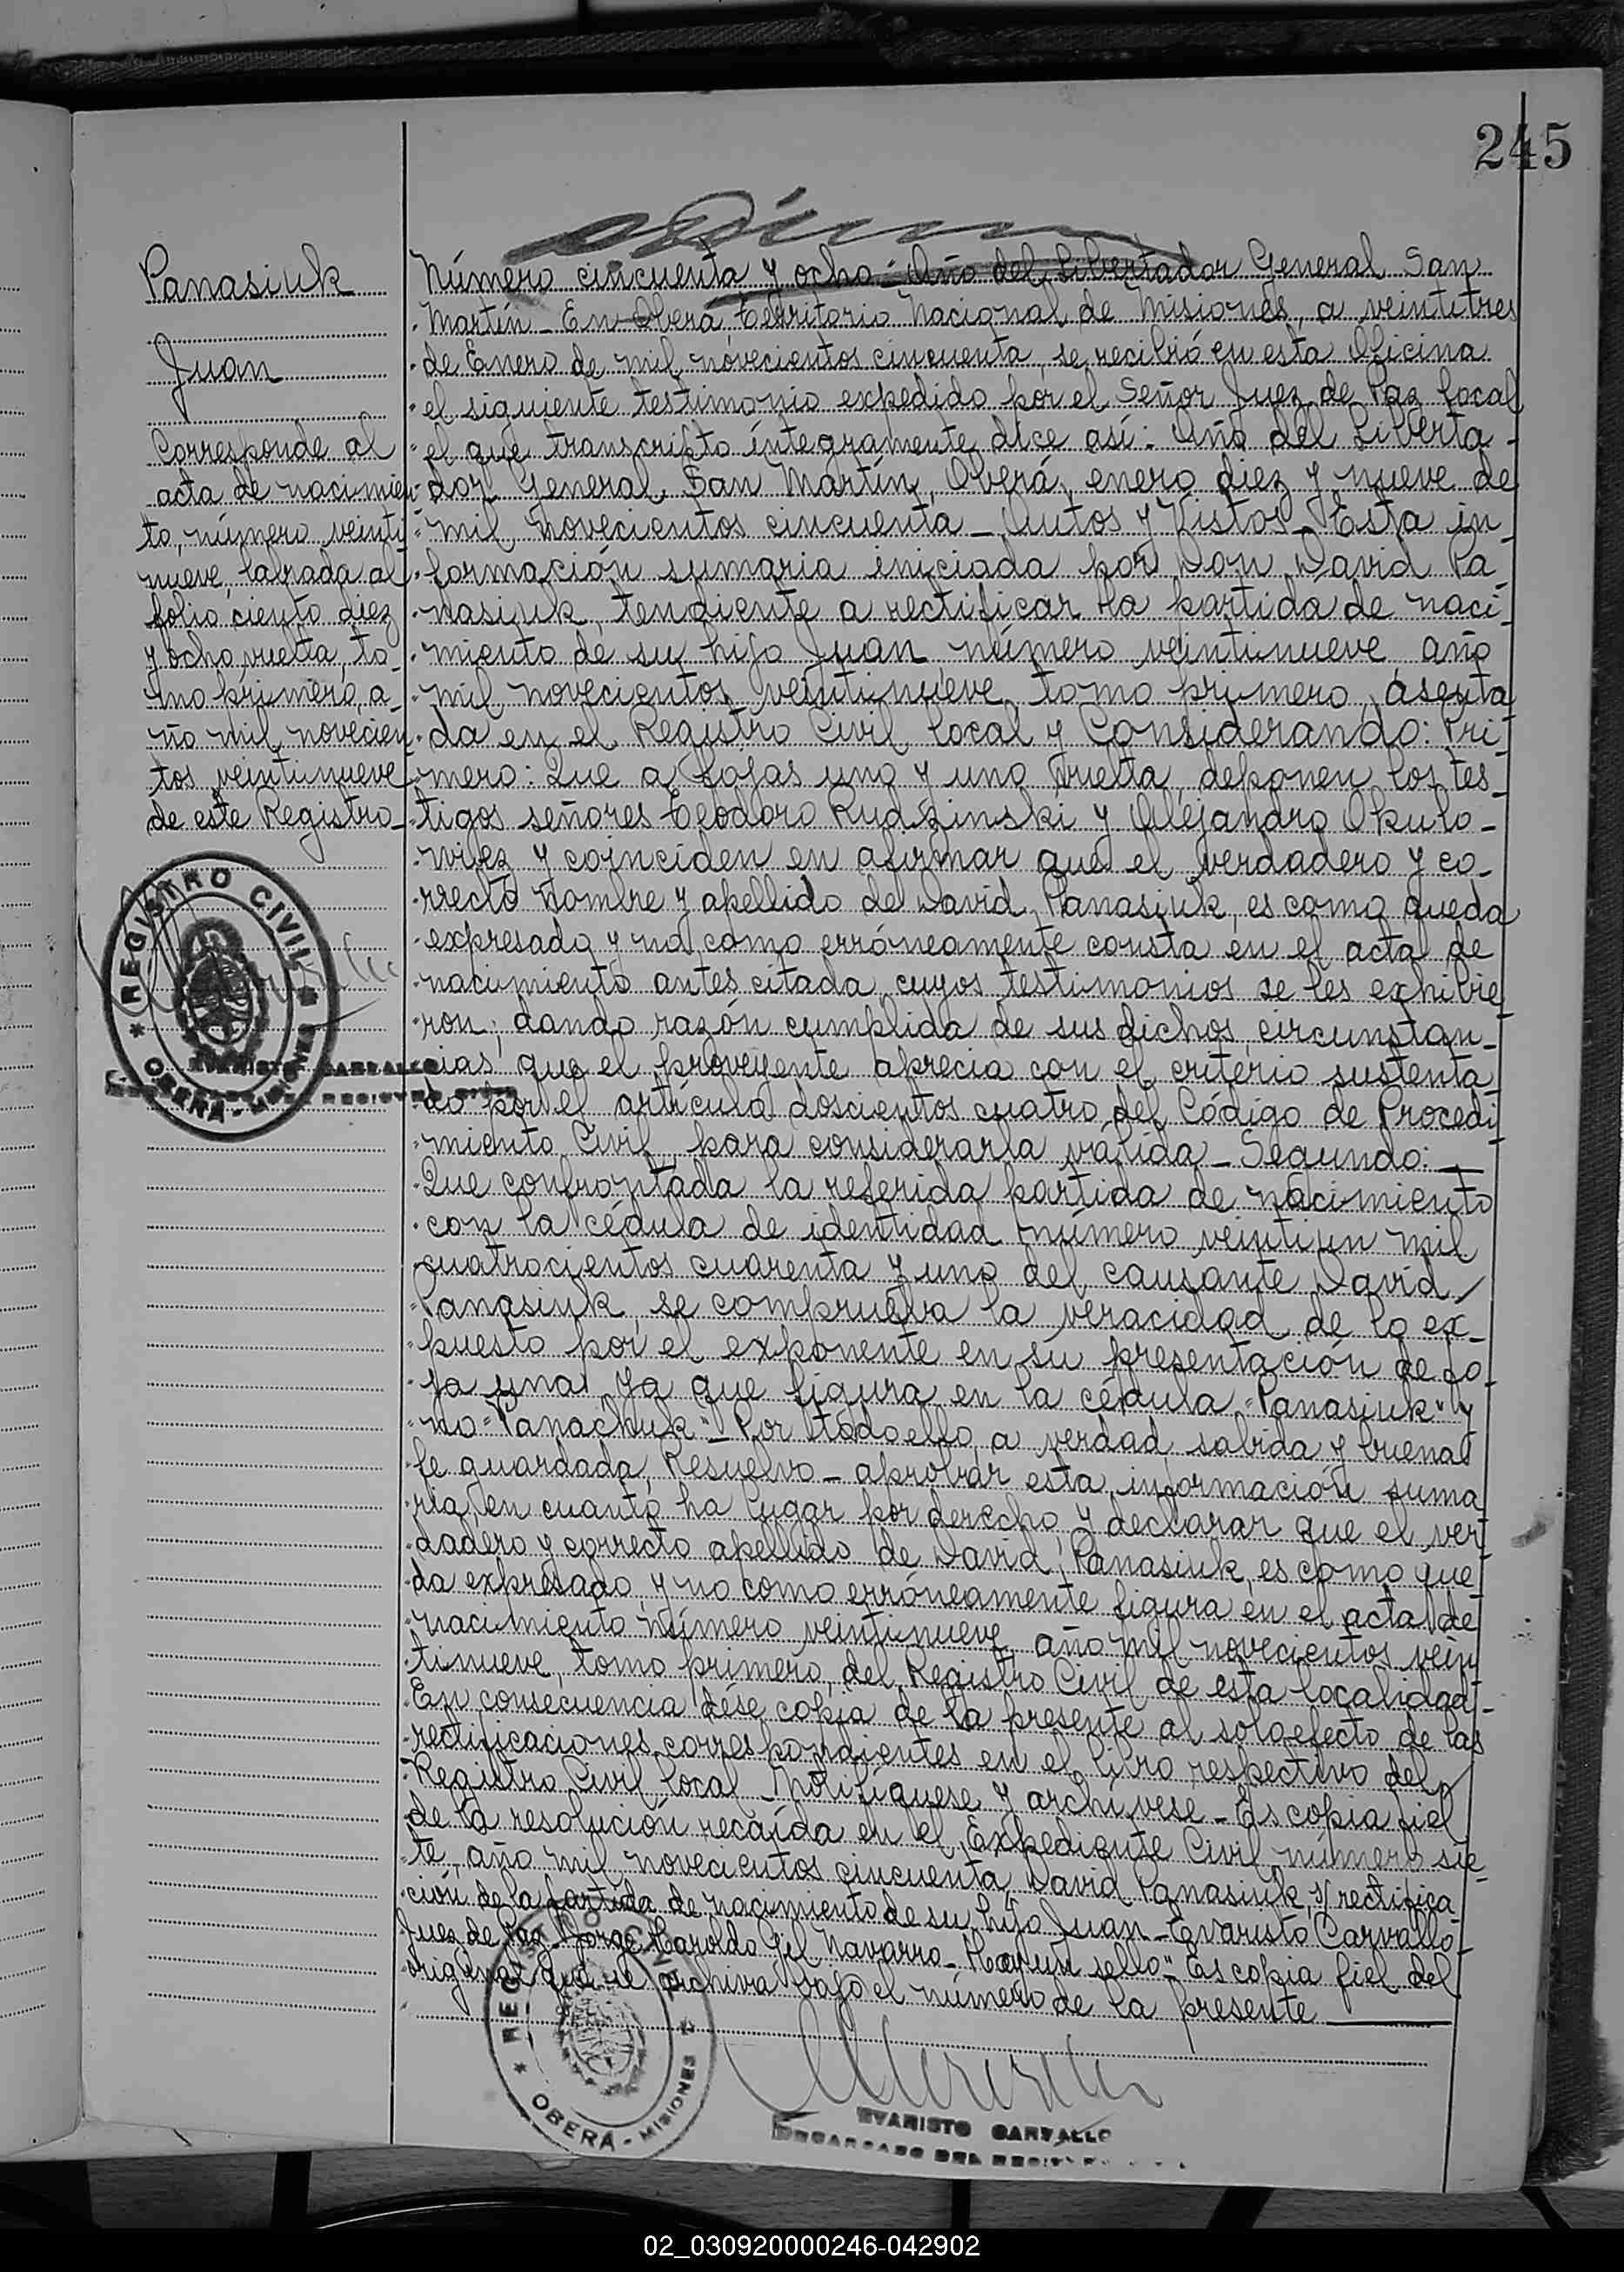 245
Panasiuk
Juan
Corresponde al
acta de nacimien-
to, número veinti-
nueve, labrada al
folio ciento diez
y ocho vuelta, to-
mo primero, a-
ño mil novecien-
tos veintinueve
de este Registro_
REGISTRO CIVIL
OBERÁ - MISIONES
EVARISTO CARVALLO
Número cincuenta y ocho_ Año del Libertador General San
Martín_ En Oberá Territorio Nacional de Misiones, a veintitres
de Enero de mil novecientos cincuenta, se recibió en esta Oficina
el siguiente testimonio expedido por el Señor Juez de Paz local
el que transcripto íntegramente dice así: Año del Liberta-
dor General San Martín, Oberá, enero diez y nueve de
mil novecientos cincuenta_ Autos y Vistos_ Esta in-
formación sumaria iniciada por Don David Pa-
nasiuk, tendiente a rectificar la partida de naci-
miento de su hijo Juan, número veintinueve, año
mil novecientos veintinueve, tomo primero, asenta-
da en el Registro Civil local y Considerando: Pri-
mero: Que a fojas una y una vuelta, deponen los tes-
tigos señores Teodoro Rudzinski y Alejandro Okulo-
wiez y coinciden en afirmar que el verdadero y co-
rrecto nombre y apellido de David Panasiuk, es como queda
expresado y no como erróneamente consta en el acta de
nacimiento antes citada, cuyos testimonios se les exhibie-
ron; dando razón cumplida de sus dichos, circunstan-
cias, que el proveyente aprecia con el criterio sustenta-
do por el artículo doscientos cuatro del Código de Procedi-
miento Civil, para considerarla válida_ Segundo:_
Que confrontada la referida partida de nacimiento
con la cédula de identidad número veintiun mil
cuatrocientos cuarenta y uno del causante David
Panasiuk, se comprueba la veracidad de lo ex-
puesto por el exponente en su presentación de fo-
ja una ya que figura en la cédula "Panasiuk" y
no "Panachuk"_ Por todo ello, a verdad sabida y buena
fe guardada, Resuelvo_ aprobar esta información suma-
ria, en cuanto ha lugar por derecho, y declarar que el ver-
dadero y correcto apellido de David Panasiuk, es como que-
da expresado, y no como erróneamente figura en el acta de
nacimiento número veintinueve, año mil novecientos vein-
tinueve, tomo primero, del Registro Civil de esta localidad_
En consecuencia dése copia de la presente al solo efecto de las
rectificaciones correspondientes en el libro respectivo del
Registro Civil local_ Notifíquese y archívese_ Es copia fiel
de la resolución recaída en el Expediente Civil número sie-
te, año mil novecientos cincuenta, David Panasiuk, s/ rectifica-
ción de la partida de nacimiento de su hijo Juan_ Evaristo Carvallo_
Juez de Paz_ Jorge Haroldo Gil Navarro_ Hay un sello"_ Es copia fiel del
original que se archiva bajo el número de la presente
REGISTRO CIVIL
OBERÁ - MISIONES
EVARISTO CARVALLO
ENCARGADO DEL REGISTRO
02_030920000246-042902